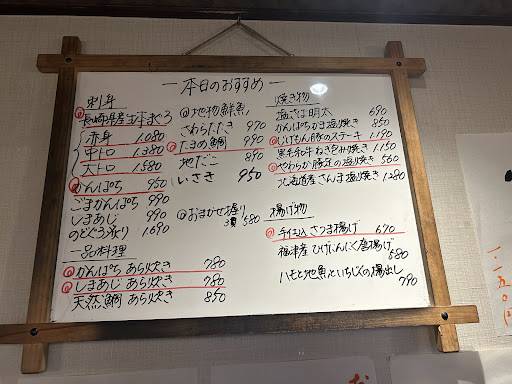 一本日のおすすめ一
刺身
長崎県産 本まぐろ
赤身 1.080
中トロ 1.380
大トロ 1.580
かんぱち 950
ごまかんぱち 990
しまあじ 990
のどぐろ炙り 1.690
一品料理
かんぱち あら炊き 780
しまあじ あら炊き 780
天然鯛 あら炊き 850
地物鮮魚
さわらたたき 970
たまの鯛 990
地だこ 890
いさき 950
おまかせ握り
3貫 580
焼き物
塩さば明太 690
かんぱちかま塩焼き 850
じげもん豚のステーキ 1.190
黒毛和牛ねぎ包み焼き 1.150
やわらか豚足の塩焼き 560
北海道産さんま塩焼き 1.280
揚げ物
手仕込さつま揚げ 670
福津産ひげにんにく唐揚げ
580
ハモと地魚といちじくの揚出し
790